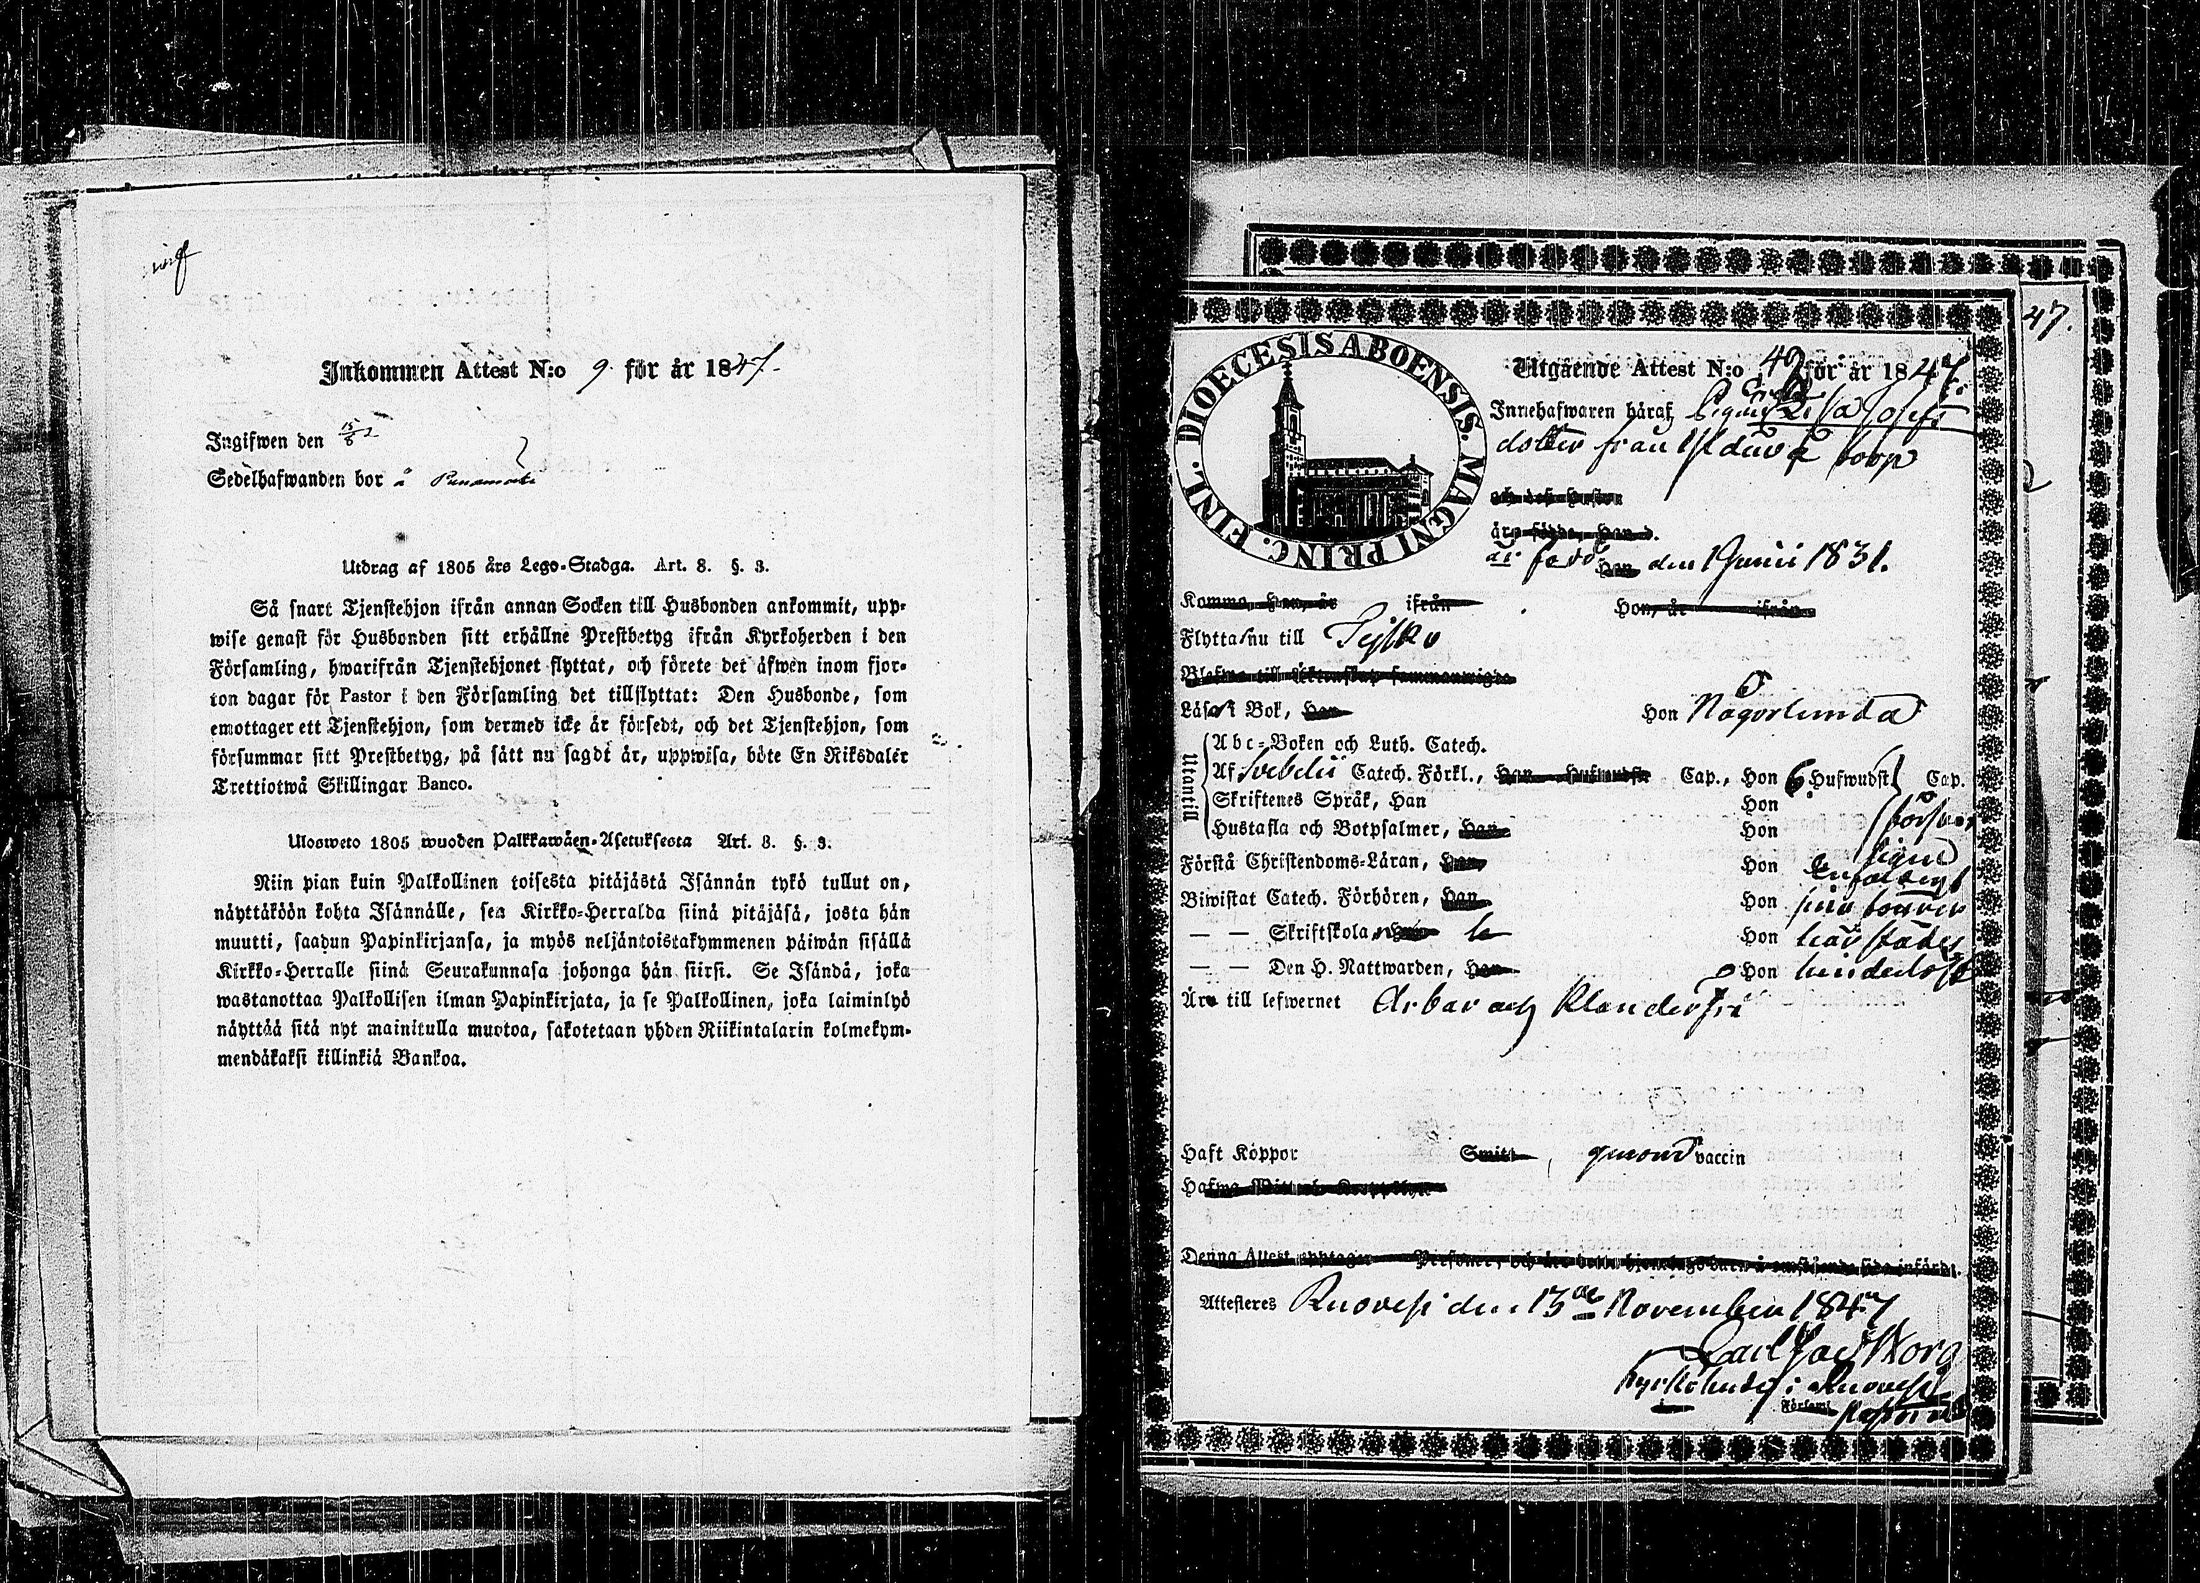 Inkommen Attest N:o 9 för år 1847.
Ingifwen den
Sedelhafwanden bor å
Utdrag af 1805 års Lego-Stadga. Art. 8. §. 3.
Så snart Tjenstehjon ifrån annan Socken till Husbonden ankommit, upp-
wise genast för Husbonden sitt erhållne Prestbetyg ifrån Kyrkoherden i den
Församling, hwarifrån Tjenstehjonet flyttat, och förete det äfwen inom fjor-
ton dagar för Pastor i den Församling det tillflyttat: Den Husbonde, som
emottager ett Tjenstehjon, som dermed icke är försedt, och det Tjenstehjon, som
försummar sitt Prestbetyg, på sätt nu sagdt är, uppwisa, böte En Riksdaler
Trettiotwå Skillingar Banco.
Ulosweto 1805 wuoden Palkkawäen-Asetuksesta Art. 8. §. 3.
Niin pian kuin Palkollinen toisesta pitäjästä Isännän tykö tullut on,
näyttäköön kohta Isännälle, sen Kirkko-Herralda siinä pitäjäsä, josta hän
muutti, saadun Papinkirjansa, ja myös neljäntoistakymmenen päiwän sisällä
Kirkko-Herralle siinä Seurakunnasa johonga hän siirsi. Se Isändä, joka
wastanottaa Palkollisen ilman Papinkirjata, ja se Palkollinen, joka laiminlyö
näyttää sitä nyt mainitulla muotoa, sakotetaan yhden Riikintalarin kolmekym-
mendäkaksi killinkiä Bankoa.
47.
DIOECESIS ABOENSIS. MAGNI PRINC. FINL.
Utgående Attest N:o 40 för år 1847.
Innehafwaren häraf, Pigan Lisa Josefs
dotter från torp
och dess hustru
äro födde, Han d.
är född Han den 1 Junii 1831.
Kommo, Han, år ifrån Hon, år ifrån
Flytta nu till
Blefwo till Äktenskap sammanwigde
Läsa i Bok, Han Hon Någorlunda
Utantill
Abc-Boken och Luth. Catech.
Af Svebelii Catech. Förkl., Han Hufwudst. Cap., Hon 6 Hufwudst. Cap.
Skriftenes Språk, Han Hon
Hustafla och Botpsalmer, Han Hon
Första Christendoms-Läran, Han Hon
Biwistat Catech. Förhören, Han Hon
— — Skriftskola, Han Hon
— — Den H. Nattwarden, Han Hon
Äro till lefwernet Ärbar och Klanderfri
Haft Koppor Smitt, genom vaccin
Denna Attest upptager Personer, och äro deras hjonelagsbarn å omstående sida införde.
Attesteres Ruovesi den 13de November 1847
Carl Jac Borg
Kyrkoherde i Ruovesi
Församl.